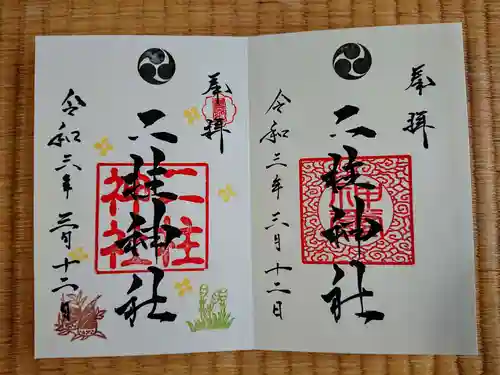 奉拝
二柱神社
令和三年三月十二日
奉拝
二柱神社
二柱
神社
令和三年三月十二日